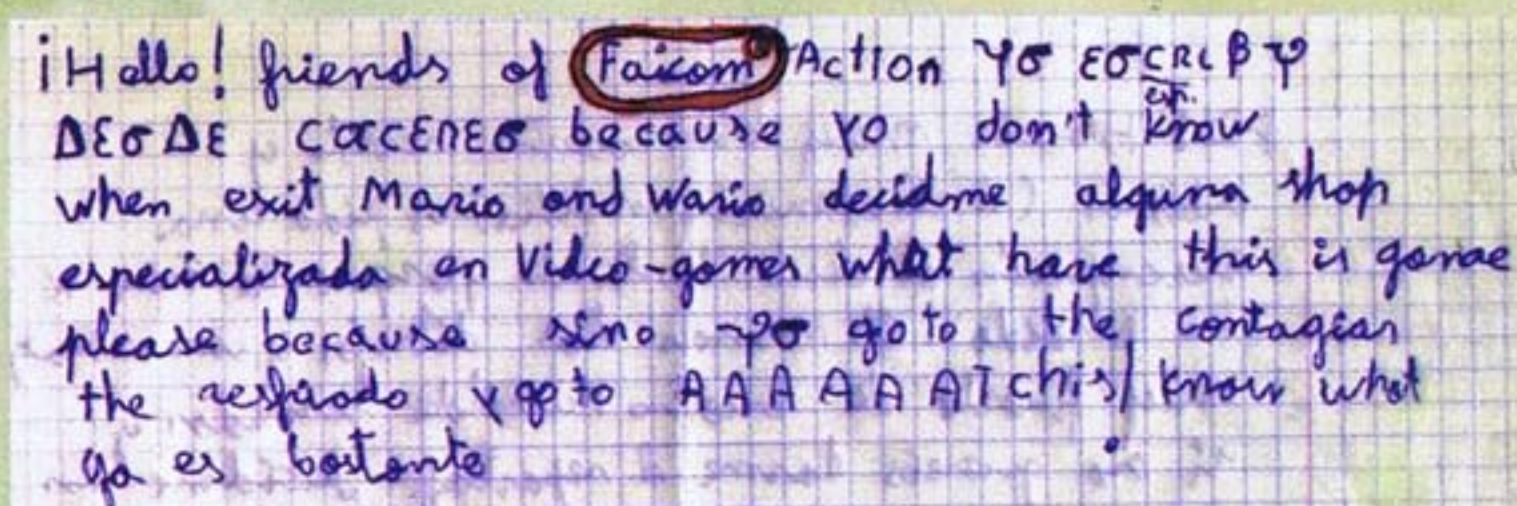 ¡Hello! friends of Faicom Action γσ εσCRLβφ
esp.
ΔΕσΔΕ CαCEREσ because yo don't know
when exit Mario and Wario decidme alguna shop
especializada en Video-games what have this is gamae
please because sino γσ go to the contagiar
the resfriado y go to AAAAAATchis! know what
ya es bastante